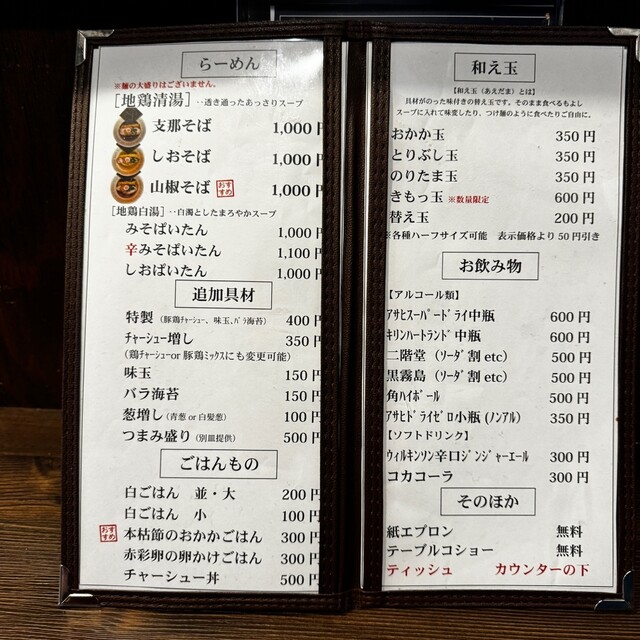 らーめん
※麺の大盛りはございません。
[地鶏清湯]‥透き通ったあっさりスープ
支那そば 1,000円
しおそば 1,000円
山椒そば おすすめ 1,000円
[地鶏白湯]‥白濁としたまろやかスープ
みそばいたん 1,000円
辛みそばいたん 1,100円
しおばいたん 1,000円
追加具材
特製(豚鶏ﾁｬｰｼｭｰ、味玉、ﾊﾞﾗ海苔) 400円
ﾁｬｰｼｭｰ増し 350円
(鶏ﾁｬｰｼｭｰor 豚鶏ﾐｯｸｽにも変更可能)
味玉 150円
バラ海苔 150円
葱増し(青葱 or 白髪葱) 100円
つまみ盛り(別皿提供) 500円
ごはんもの
白ごはん 並・大 200円
白ごはん 小 100円
おすすめ 本枯節のおかかごはん 300円
赤彩卵の卵かけごはん 300円
チャーシュー丼 500円
和え玉
【和え玉(あえだま)とは】
具材がのった味付きの替え玉です。そのまま食べるもよし
スープに入れて味変したり、つけ麺のように食べたりご自由に。
おかか玉 350円
とりぶし玉 350円
のりたま玉 350円
きもっ玉 ※数量限定 600円
替え玉 200円
※各種ハーフサイズ可能 表示価格より50円引き
お飲み物
【アルコール類】
ｱｻﾋｽｰﾊﾟｰﾄﾞﾗｲ中瓶 600円
ｷﾘﾝﾊｰﾄﾗﾝﾄﾞ中瓶 600円
二階堂(ｿｰﾀﾞ割 etc) 500円
黒霧島(ｿｰﾀﾞ割 etc) 500円
角ﾊｲﾎﾞｰﾙ 500円
ｱｻﾋﾄﾞﾗｲｾﾞﾛ小瓶(ﾉﾝｱﾙ) 350円
【ソフトドリンク】
ｳｨﾙｷﾝｿﾝ辛口ｼﾞﾝｼﾞｬｰｴｰﾙ 300円
コカコーラ 300円
そのほか
紙エプロン 無料
テーブルコショー 無料
ティッシュ カウンターの下